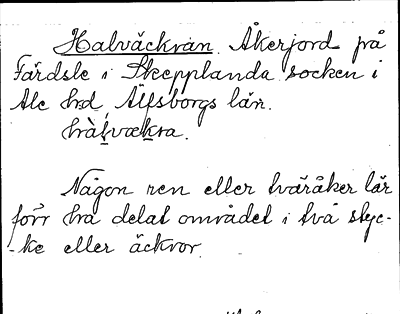 Halväckran. Åkerjord på
Färdsle i Skepplanda socken i
Ale hd, Älfsborgs län.
hàl̥vækra.
Någon ren eller tväråker lär
förr ha delat området i två styc-
-ke eller äckror.